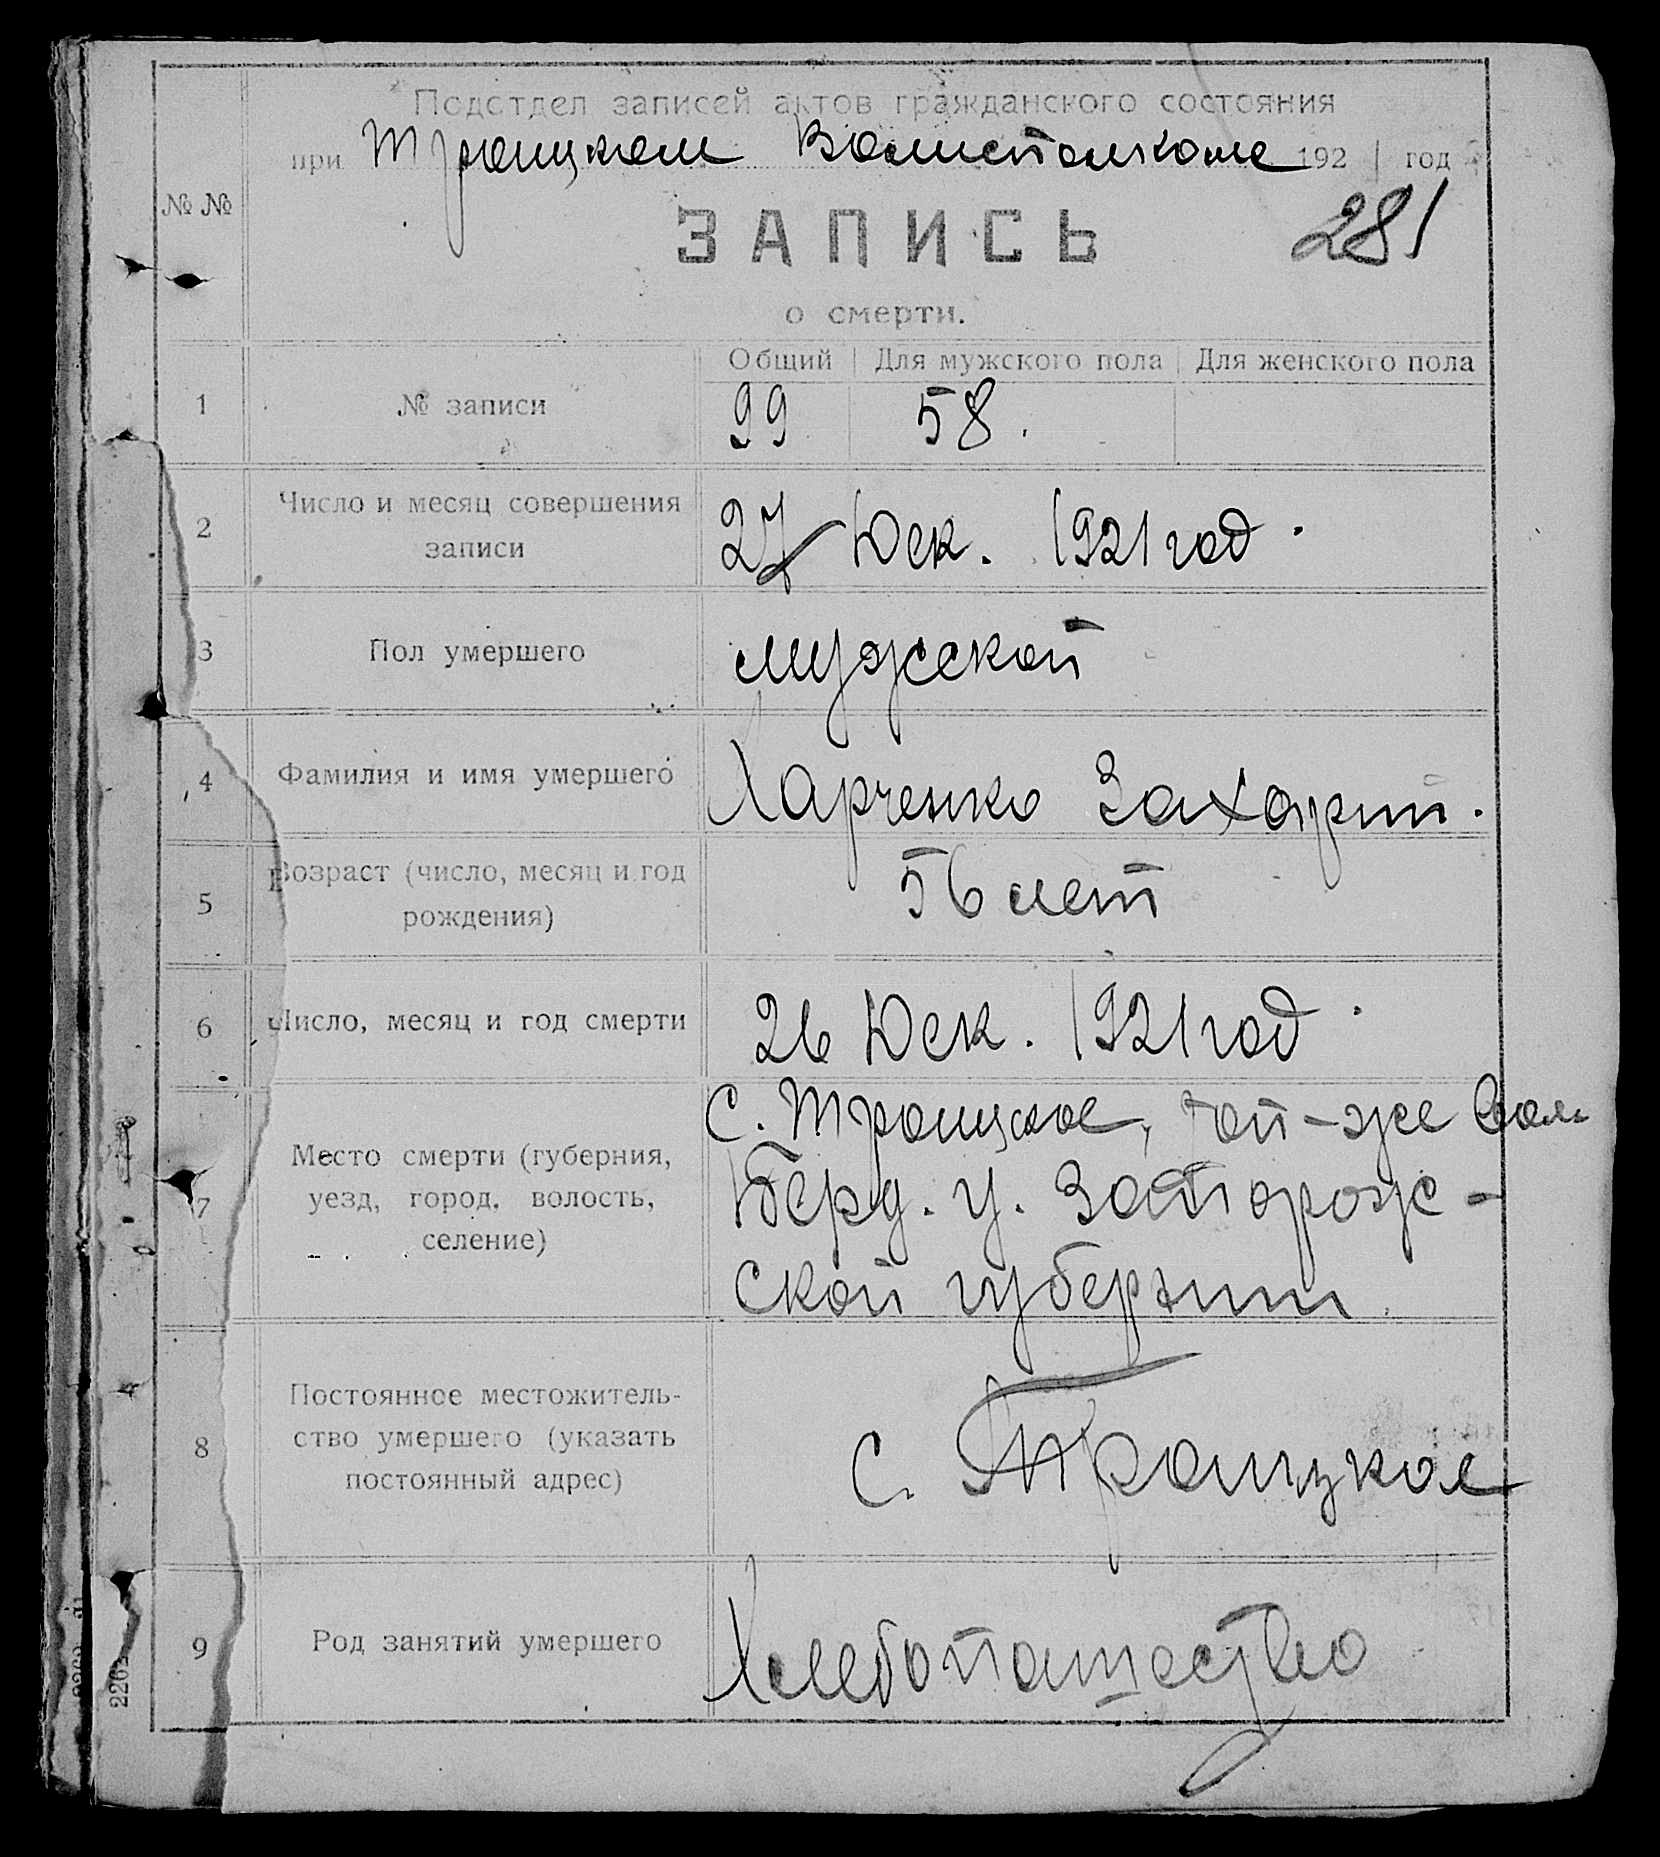 Подотдел записей актов гражданского состояния
при Троицком Волисполкоме 1921 год
№№
ЗАПИСЬ
281
о смерти.
Общий Для мужского пола Для женского пола
1 № записи 99 58.
2 Число и месяц совершения
записи
27 Дек. 1921 год.
3 Пол умершего мужской
4 Фамилия и имя умершего Харченко Захарий.
5 Возраст (число, месяц и год
рождения)
56 лет
6 Число, месяц и год смерти 26 Дек. 1921 год.
с. Троицкое, той-же вол.
7 Место смерти (губерния,
уезд, город, волость,
селение)
Берд. у. Запорож-
ской губернии.
8 Постоянное местожитель-
ство умершего (указать
постоянный адрес)
с. Троицкое
9 Род занятий умершего Хлебопашество